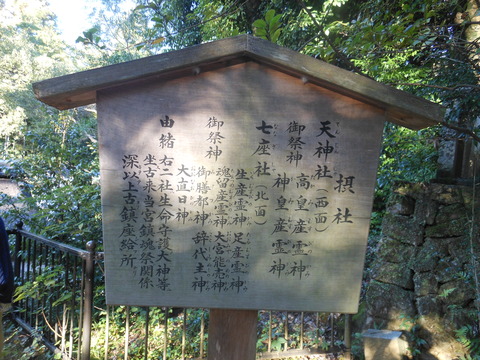 摂社
天神社（西面）
御祭神 高皇産霊神
神皇産霊神
七座社（北面）
御祭神 生産霊神 足産霊神
魂留産霊神 大宮能売神
御膳都神 辞代主神
大直日神
由緒 右二社生命守護大神等
坐古来当宮鎮魂祭関係
深以上古鎮座給所